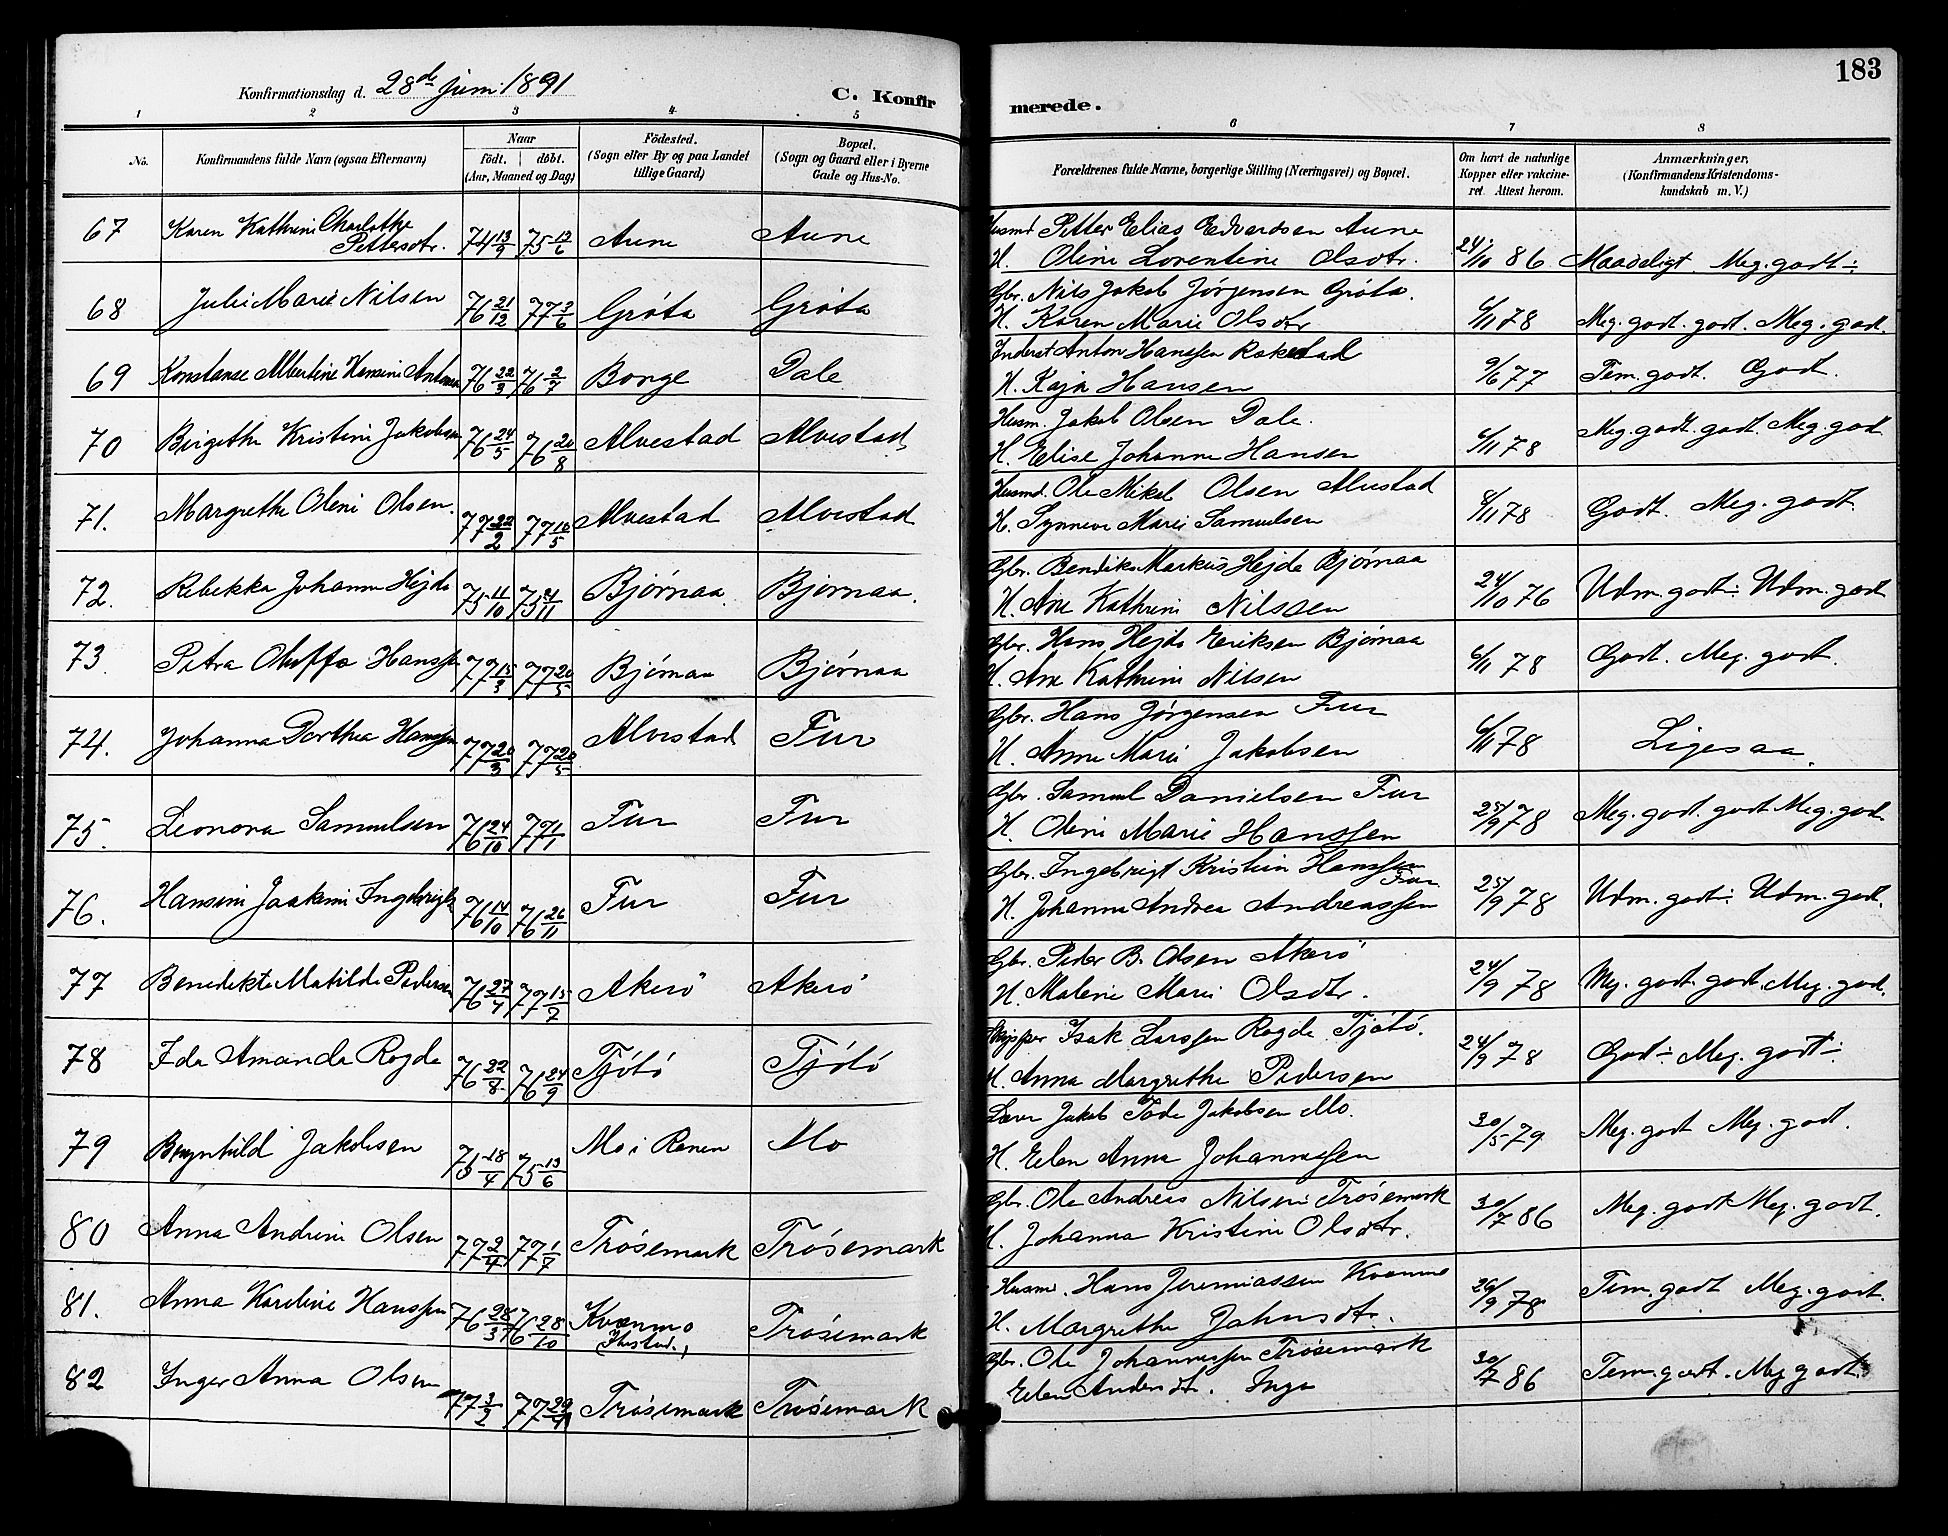 183
Konfirmationsdag d. 28de Juni 1891
C. Konfirmerede.
1 2 3 4 5 6 7 8
No. Konfirmandens fulde Navn (ogsaa Efternavn) Naar födt. döbt. (Aar, Maaned og Dag) Födested. (Sogn eller By og paa Landet tillige Gaard) Bopæl. (Sogn og Gaard eller i Byerne Gade og Hus-No. Forældrenes fulde Navne, borgerlige Stilling (Næringsvei) og Bopæl. Om havt de naturlige Kopper eller vakcineret. Attest herom. Anmærkninger, (Konfirmandens Kristendomskundskab m. V.)
67 Karen Kathrine Charlotthe Pettersdtr. 74 13/9 75 13/6 Aune Aune Husmd Petter Elias Edvardsen Aune
H. Oline Lorentine Olsdtr. 24/10 86 Maadeligt. Meg. godt ÷
68 Julie Marie Nilsen 76 21/12 77 2/6 Gróta Gróta Gbr. Nils Jakob Jørgensen Gróta.
H. Karen Marie Olsdtr 6/11 78 Meg. godt. godt. Meg. godt.
69 Konstanse Albertine Hansine Antonsen 76 22/3 76 2/7 Borge Dale Inderst Anton Hanssen Rokestad
H. Kaja Hansen 9/6 77 Tem. godt. Godt.
70 Birgithe Kristine Jakobsen 76 24/5 76 20/8 Alvestad Alvestad Husm. Jakob Olsen Dale.
H. Elise Johanne Hansen 6/11 78 Meg. godt. godt. Meg. godt
71. Margrethe Oleni Olsen. 77 22/2 77 10/5 Alvestad Alvestad Husmd. Ole Mikal Olsen Alvestad
H. Synneve Marie Samuelsen 8/11 78 Godt. Meg. godt.
72. Rebekka Johanna Hejde 75 11/10 75 21/11 Bjórnaa. Bjornaa. Gbr. Bendik Markus Hejde Bjórnaa
H. Ane Kathrine Nilssen 24/10 76 Udm. godt ÷ Udm. godt
73. Petra Oluffa Hanssen 77 15/3 77 20/5 Bjórnaa Bjórnaa Gbr. Hans Hejde Eriksen Bjórnaa
H. Ane Kathrine Nilsen 6/11 78 Godt. Meg. godt.
74. Johanna Dorthea Hanssen 77 20/3 77 20/5 Alvestad Fur Gbr. Hans Jørgensen Fur
H. Anne Marie Jakobsen 6/11 78 Ligesaa.
75. Leonora Samuelsen 76 24/10 77 1/1 Fur Fur Gbr. Samuel Danielsen Fur
H. Oleni Marie Hanssen 25/9 78 Meg. godt. godt. Meg. godt.
76. Hansine Joakime Ingebrigts 76 14/10 76 26/11 Fur Fur Gbr. Ingebrigt Kristian Hanssen Fur
H. Johanna Andrea Andreassen 25/9 78 Udm. godt ÷ Udm. godt.
77 Benedikte Matilde Pedersen 76 27/4 77 15/7 Akerö Akerö Gbr. Peder B. Olsen Akerö
H. Malene Marie Olsdtr. 24/9 78 Meg. godt. godt. Meg. godt.
78 Ida Amanda Rogde 76 22/8 76 24/9 Tjótó Tjótó Isak Larssen Rogde Tjótó.
H. Anna Margrethe Pedersen 24/9 78 Godt ÷ Meg. godt ÷
79 Brynhild Jakobsen 75 18/4 75 13/6 Mo i Ranen Mo Lærer Jakob Tode Jakobsen Mo.
H. Elen Anna Johannessen 30/5 79 Meg. godt Meg. godt.
80 Anna Andrine Olsen 77 2/4 77 1/7 Trósemark Trósemark Gbr. Ole Andreas Nilsen Trósemark
H. Johanna Kristine Olsdtr. 30/7 86 Meg. godt Meg. godt.
81. Anna Karoline Hanssen 76 28/3 76 28/10 Kvanmo Trósemark Husmd. Hans Jeremiassen Kvanmo
H. Margrethe Jahnsdtr. 26/9 78 Tem. godt Meg. godt.
82 Inger Anna Olsen 77 3/2 77 29/4 Trósemark Trósemark Gbr. Ole Johannessen Trósemark
Elen Andersdtr. 30/7 86 Tem. godt. Meg godt.